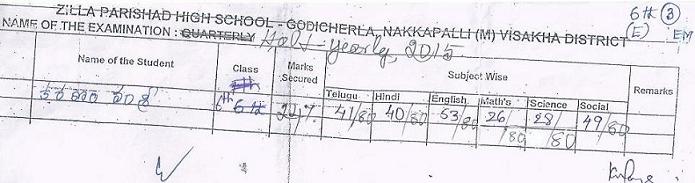 ZILLA PARISHAD HIGH SCHOOL - GODICHERLA, NAKKAPALLI (M) VISAKHA DISTRICT
6th (3)
NAME OF THE EXAMINATION : QUARTERLY Half-yearly, 2015 (E) EM
Name of the Student Class Marks Secured Subject Wise Remarks
Telugu Hindi English Math's Science Social
6th 41/80 40/80 53/80 26/80 28/80 49/80